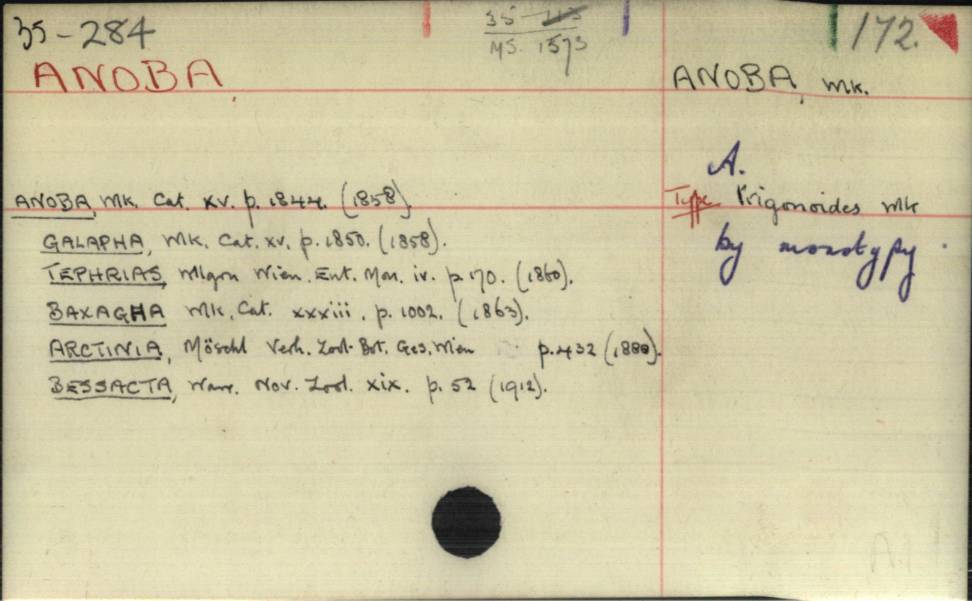 35-284
35
MS. 1573
172.
ANOBA
ANOBA, Mk.
ANOBA, Mk. Cat. xv. p. 1844. (1858).
A.
Type Trigonoides Mk
by monotypy.
GALAPHA, Mk. Cat. xv. p. 1850. (1858).
TEPHRIAS, Wllgrn Wien. Ent. Mon. iv. p. 170. (1860).
BAXAGHA Mk. Cat. xxxiii. p. 1002. (1863).
ARCTINIA, Möschl Verh. Zool-Bot. Ges. Wien p. 432 (1880).
BESSACTA, Warr. Nov. Zool. xix. p. 52 (1912).